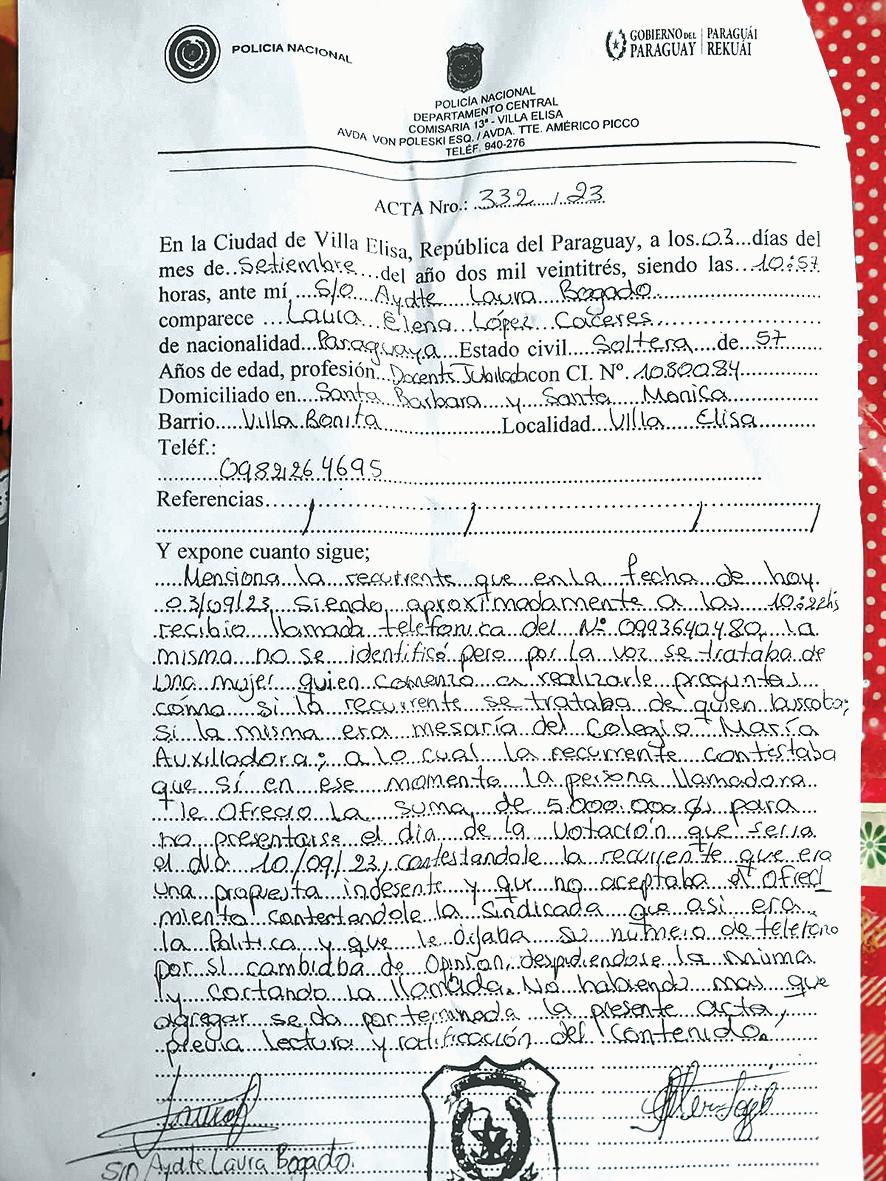 POLICIA NACIONAL
GOBIERNO DEL PARAGUAY | PARAGUÁI REKUÁI
POLICÍA NACIONAL
DEPARTAMENTO CENTRAL
COMISARIA 13ª - VILLA ELISA
AVDA VON POLESKI ESQ. / AVDA. TTE. AMÉRICO PICCO
TELÉF. 940-276
ACTA Nro.: 332 / 23
En la Ciudad de Villa Elisa, República del Paraguay, a los 03 días del
mes de Setiembre del año dos mil veintitrés, siendo las 10:57
horas, ante mí S/O Aydte Laura Bogado
comparece Laura Elena López Caceres
de nacionalidad Paraguaya Estado civil Soltera de 57
Años de edad, profesión Docente Jubilada con CI. Nº. 1080084
Domiciliado en Santa Barbara y Santa Monica
Barrio Villa Bonita Localidad Villa Elisa
Teléf.:
0982264695
Referencias
Y expone cuanto sigue;
Menciona la recurrente que en la fecha de hoy
03/09/23, siendo aproximadamente a las 10:22hs
recibio llamada telefonica del Nº 0993640480, la
misma no se identificó pero por la voz se trataba de
una mujer quien comenzo a realizarle preguntas
cómo si la recurrente se trataba de quien buscaba;
si la misma era mesaría del Colegio María
Auxiliadora; a lo cual la recurrente contestaba
que sí en ese momento la persona llamadora
le ofrecio la suma de 5.000.000 ₲ para
no presentarse el día de la votación que seria
el día 10/09/23, contestandole la recurrente que era
una propuesta indesente y que no aceptaba el ofreci
miento contestandole la sindicada que asi era
la Politica y que le dejaba su número de telefono
por si cambiaba de opinión, despidiendose la misma
y cortando la llamada. No habiendo mas que
agregar se da por terminada la presente acta,
previa lectura y ratificación del contenido.
S/O Aydte Laura Bogado.